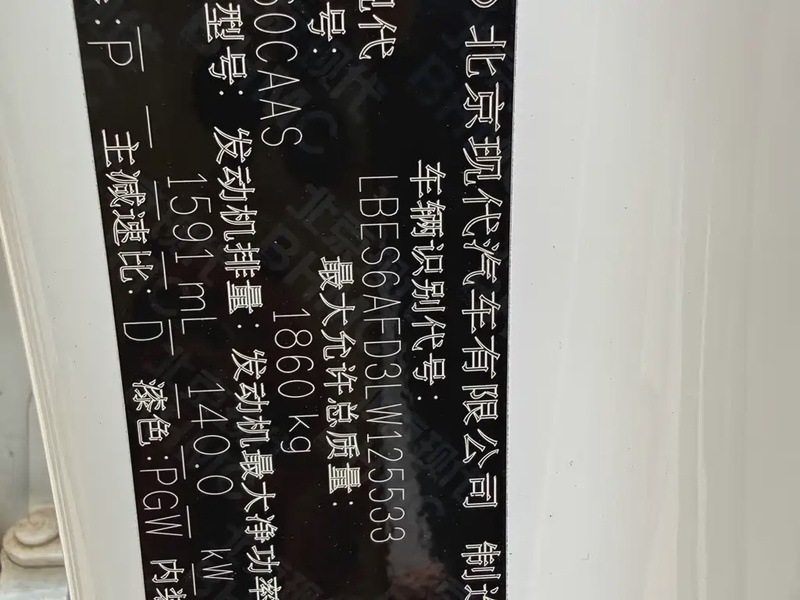 北京现代汽车有限公司 制造
现代 车辆识别代号:
LBES6AFD3LW125533
号: 最大允许总质量:
60CAAS 1860kg
型号: 发动机排量: 发动机最大净功率
1591mL 140.0 kW
:P 主减速比: D 漆色:PGW 内